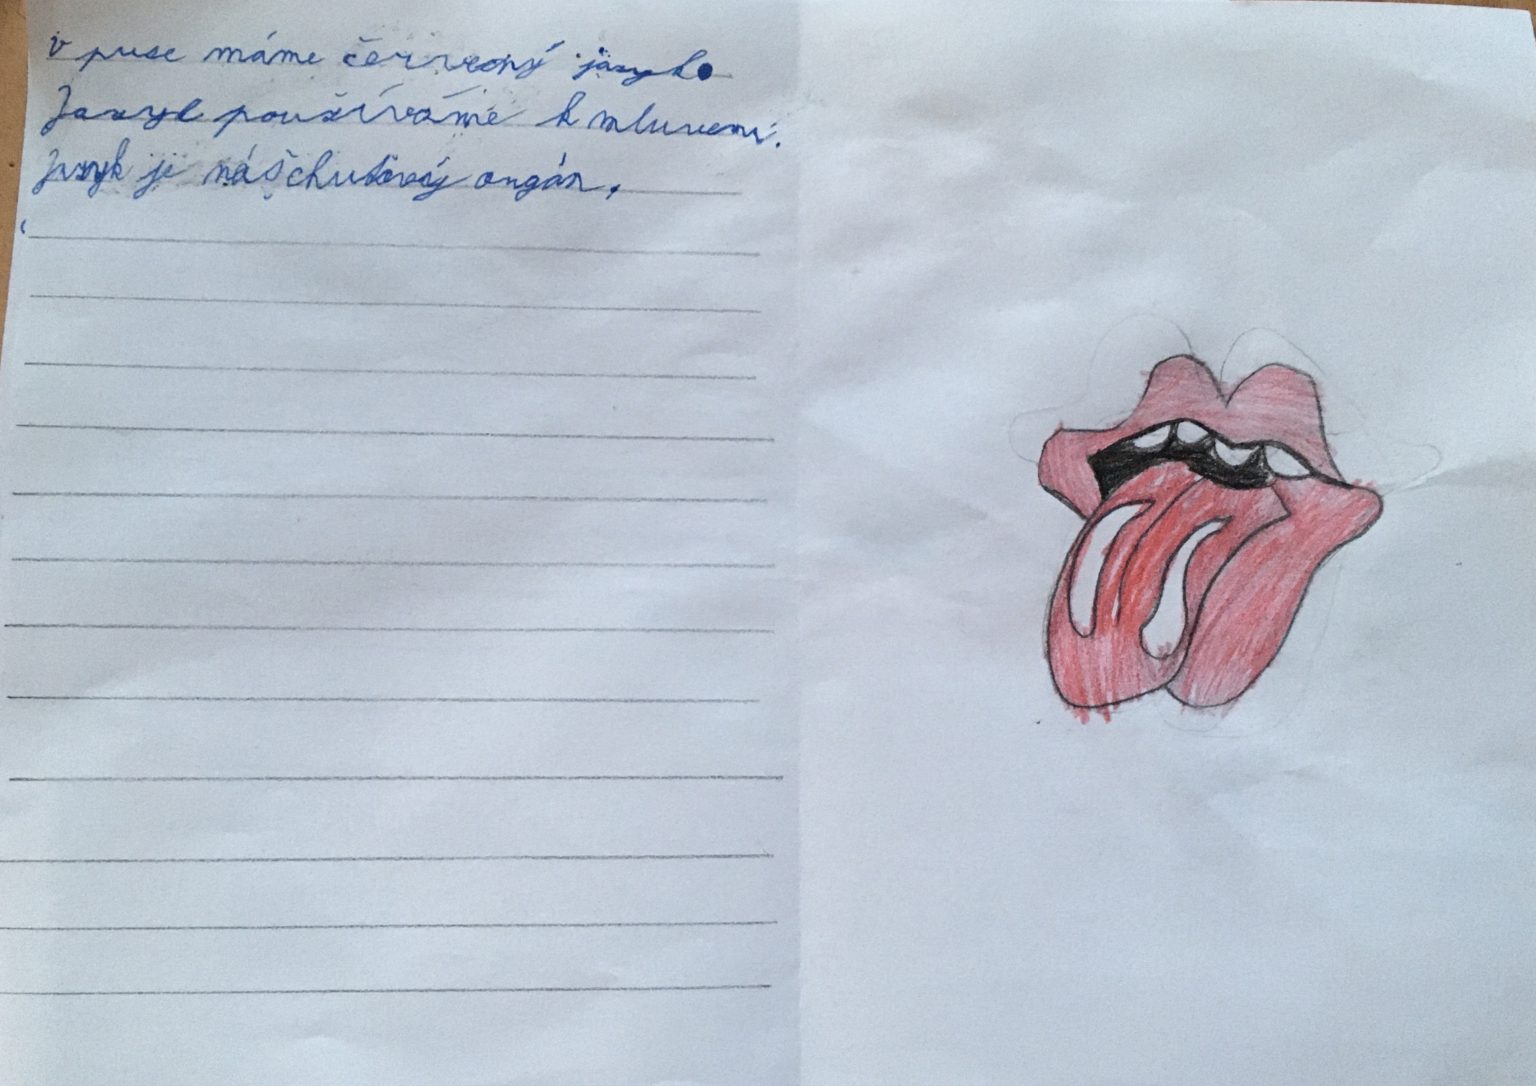 v puse máme červený jazyk.
Jazyk používáme k mluvení.
Jazyk je náš chuťový orgán.